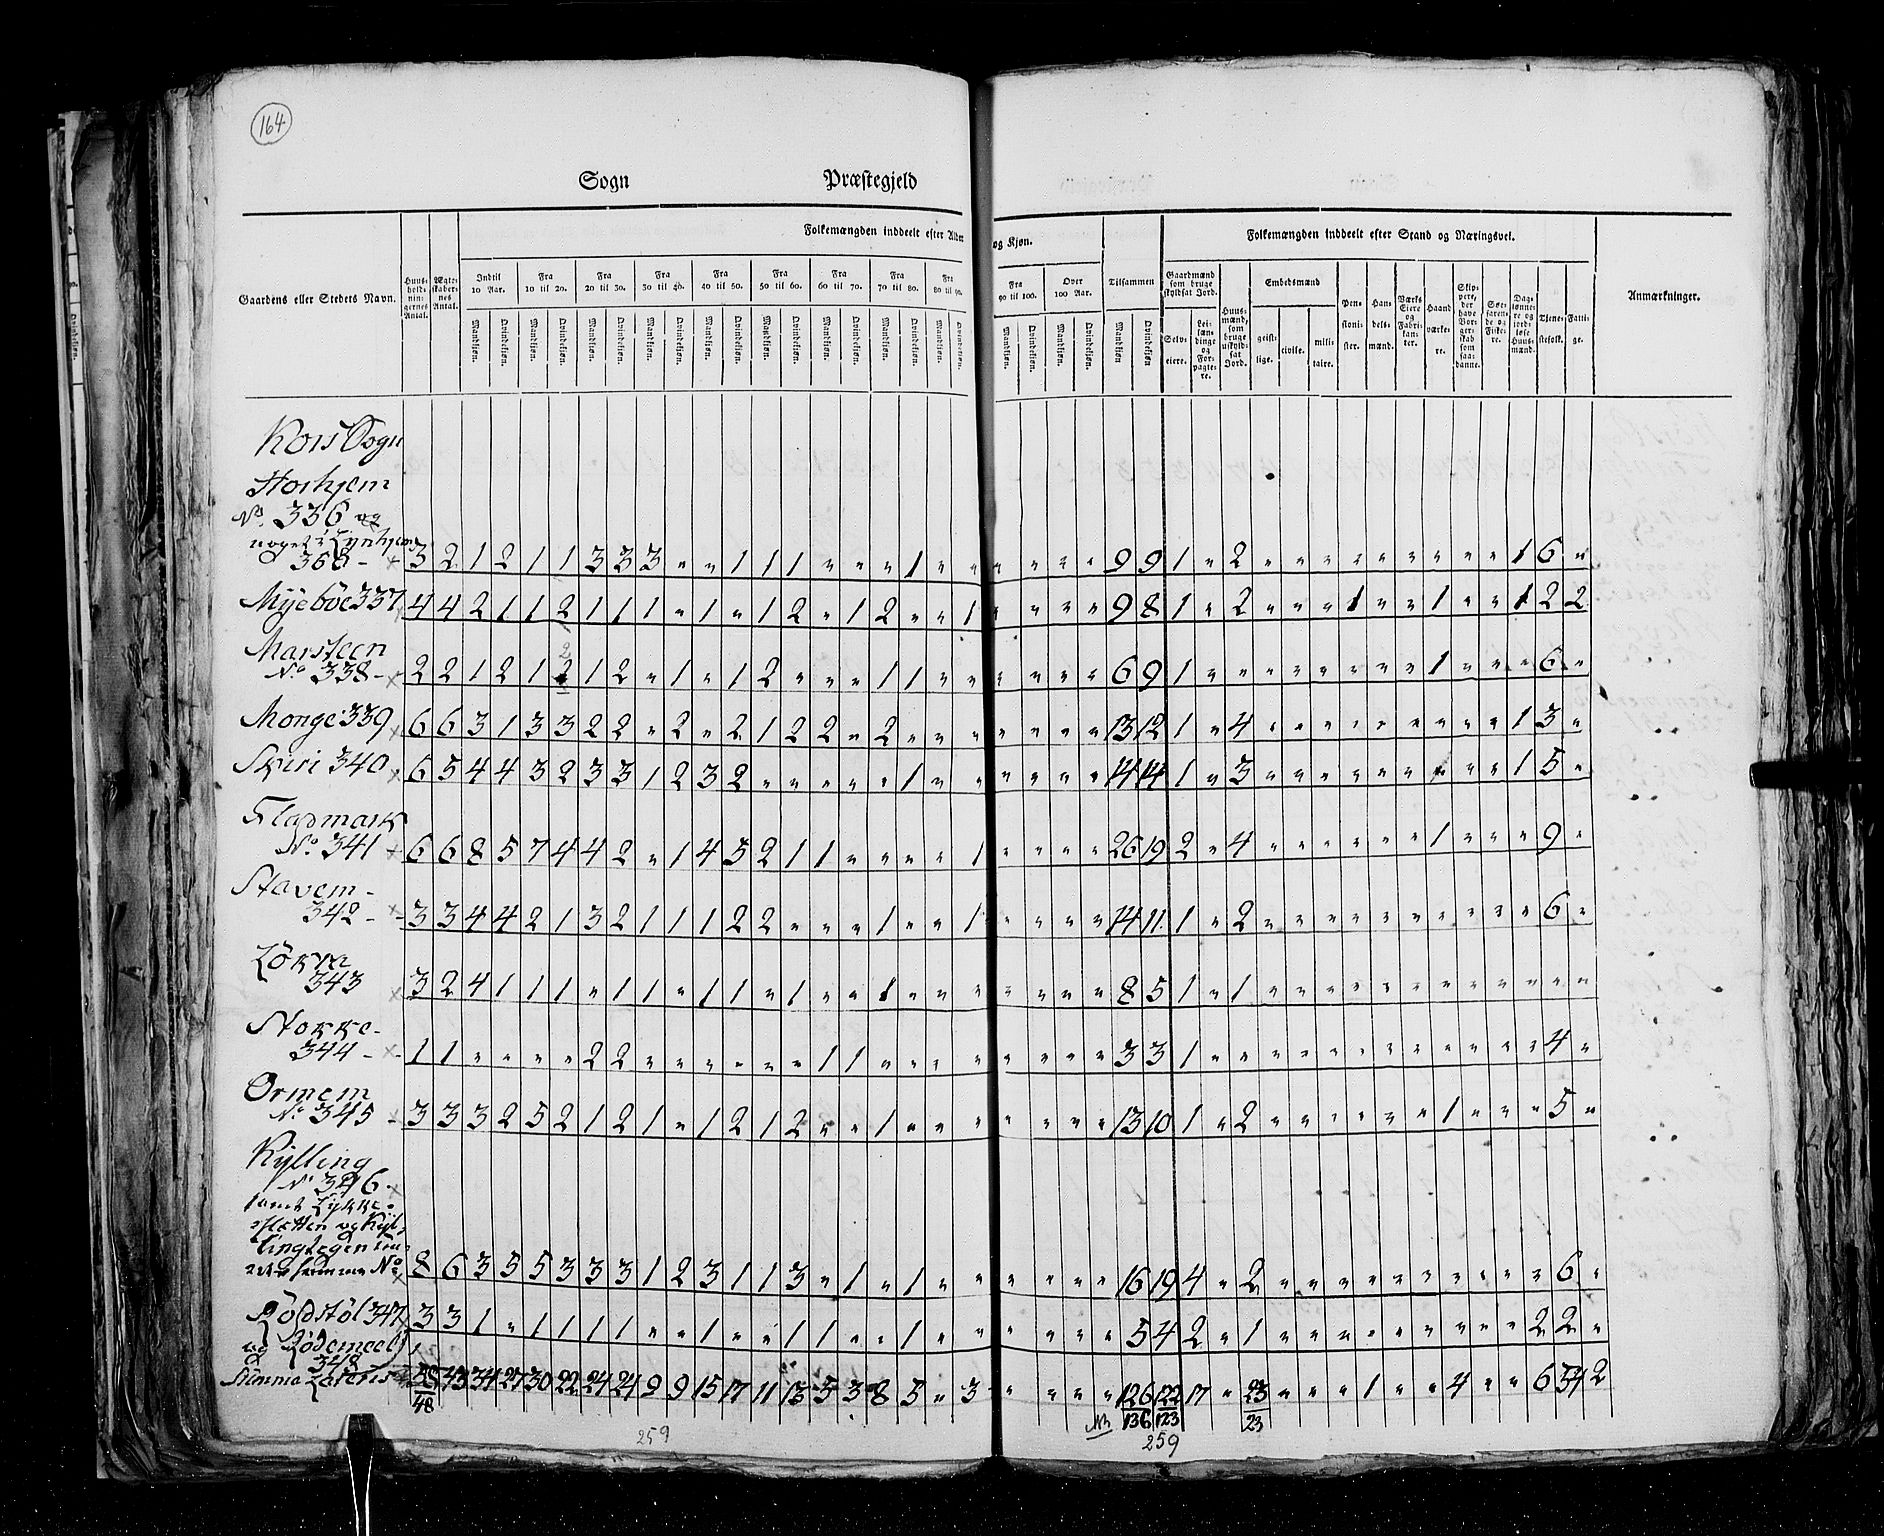 164
Sogn Præstegjeld
Folkemængden inddeelt efter Alder og Kjøn. Folkemængden inddeelt efter Stand og Næringsvei.
Gaardens eller Stedets Navn. Huusholdningernes Antal. Ægteskabernes Antal. Indtil 10 Aar. Fra 10 til 20. Fra 20 til 30. Fra 30 til 40. Fra 40 til 50. Fra 50 til 60. Fra 60 til 70. Fra 70 til 80. Fra 80 til 90. Fra 90 til 100. Over 100 Aar. Tilsammen Gaardmænd som bruge skyldsat Jord. Huusmænd, som bruge uskyldsat Jord. Embedsmænd Pensionister. Handelsmænd. Værks Eiere og Fabrikanter. Haandværkere. Skippere, der have Borgerskab som saadanne. Søefarende og Fiskere. Dagslønnere og jordløse Huusmænd. Tjenestefolk. Fattige. Anmærkninger.
Mandkjøn. Qvindekjøn. Mandkjøn. Qvindekjøn. Mandkjøn. Qvindekjøn. Mandkjøn. Qvindekjøn. Mandkjøn. Qvindekjøn. Mandkjøn. Qvindekjøn. Mandkjøn. Qvindekjøn. Mandkjøn. Qvindekjøn. Mandkjøn. Qvindekjøn. Mandkjøn. Qvindekjøn. Mandkjøn. Qvindekjøn. Mandkjøn Qvindekjøn Selveiere. Leilændinge og Forpagtere. geistlige. civile. militaire.
Kors Sogn
Horhjem
No. 336 og
noget i
368 - 3 2 1 2 1 1 3 3 3 " " 1 1 1 " " " 1 " " " " " " 9 9 1 " 2 " " " " " " " " " 1 6 "
Myeböe 337 4 4 2 1 1 2 1 1 1 " 1 " 1 2 " 1 2 " " 1 " " " " 9 8 1 " 2 " " " 1 " " 1 " " 1 2 2
2
Marsteen
No 338 - 2 2 1 2 1 2 1 2 " 1 " 1 2 " " " 1 1 " " " " " " 6 9 1 " " " " " " " " 1 " " " 6 "
Monge 339 6 6 3 1 3 3 2 2 " 2 " 2 1 2 2 " 2 " " " " " " " 13 12 1 " 4 " " " " " " " " " 1 3 "
Skiri 340 6 5 4 4 3 2 3 3 1 2 3 2 " " " " " 1 " " " " " " 14 14 1 " 3 " " " " " " " " " 1 5 "
Flapmark
No 341 6 6 8 5 7 4 4 2 " 1 4 5 2 1 1 " " " " 1 " " " " 26 19 2 " 4 " " " " " " 1 " " " 9 "
Stavem -
342 - 3 3 4 4 2 1 3 2 1 1 1 2 2 " " " 1 " " 1 " " " " 14 11 1 " 2 " " " " " " " " " " 6 "
343 3 2 4 1 1 1 " 1 1 " 1 1 " 1 " " 1 " " " " " " " 8 5 1 " 1 " " " " " " " " " " " "
Stokke -
344 - 1 1 " " " " 2 2 " " " " " " 1 1 " " " " " " " " 3 3 1 " " " " " " " " " " " " 4 "
Ormem
No 345 - 3 3 3 2 5 2 1 2 1 " 1 2 1 2 " " 1 " " " " " " " 13 10 1 " 2 " " " " " " 1 " " " 5 "
Kylling
No 346 -
samt Lykke-
sletten og Kyl-
No 8 6 3 5 5 3 3 3 1 2 3 1 1 3 " 1 " 1 " " " " " " 16 19 4 " 2 " " " " " " " " " " 6 "
347 3 3 1 " 1 1 1 1 " " 1 " " 1 1 " " 1 " " " " " " 5 4 2 " 1 " " " " " " " " " 2 2 "
og
348
Summa Lateris 58 43 34 27 30 22 24 24 9 9 15 17 11 13 5 3 8 5 " 3 " " " " 126 122 17 " 23 " " " " 1 " " 4 " " 6 54 2
48 136 123 23
259 259